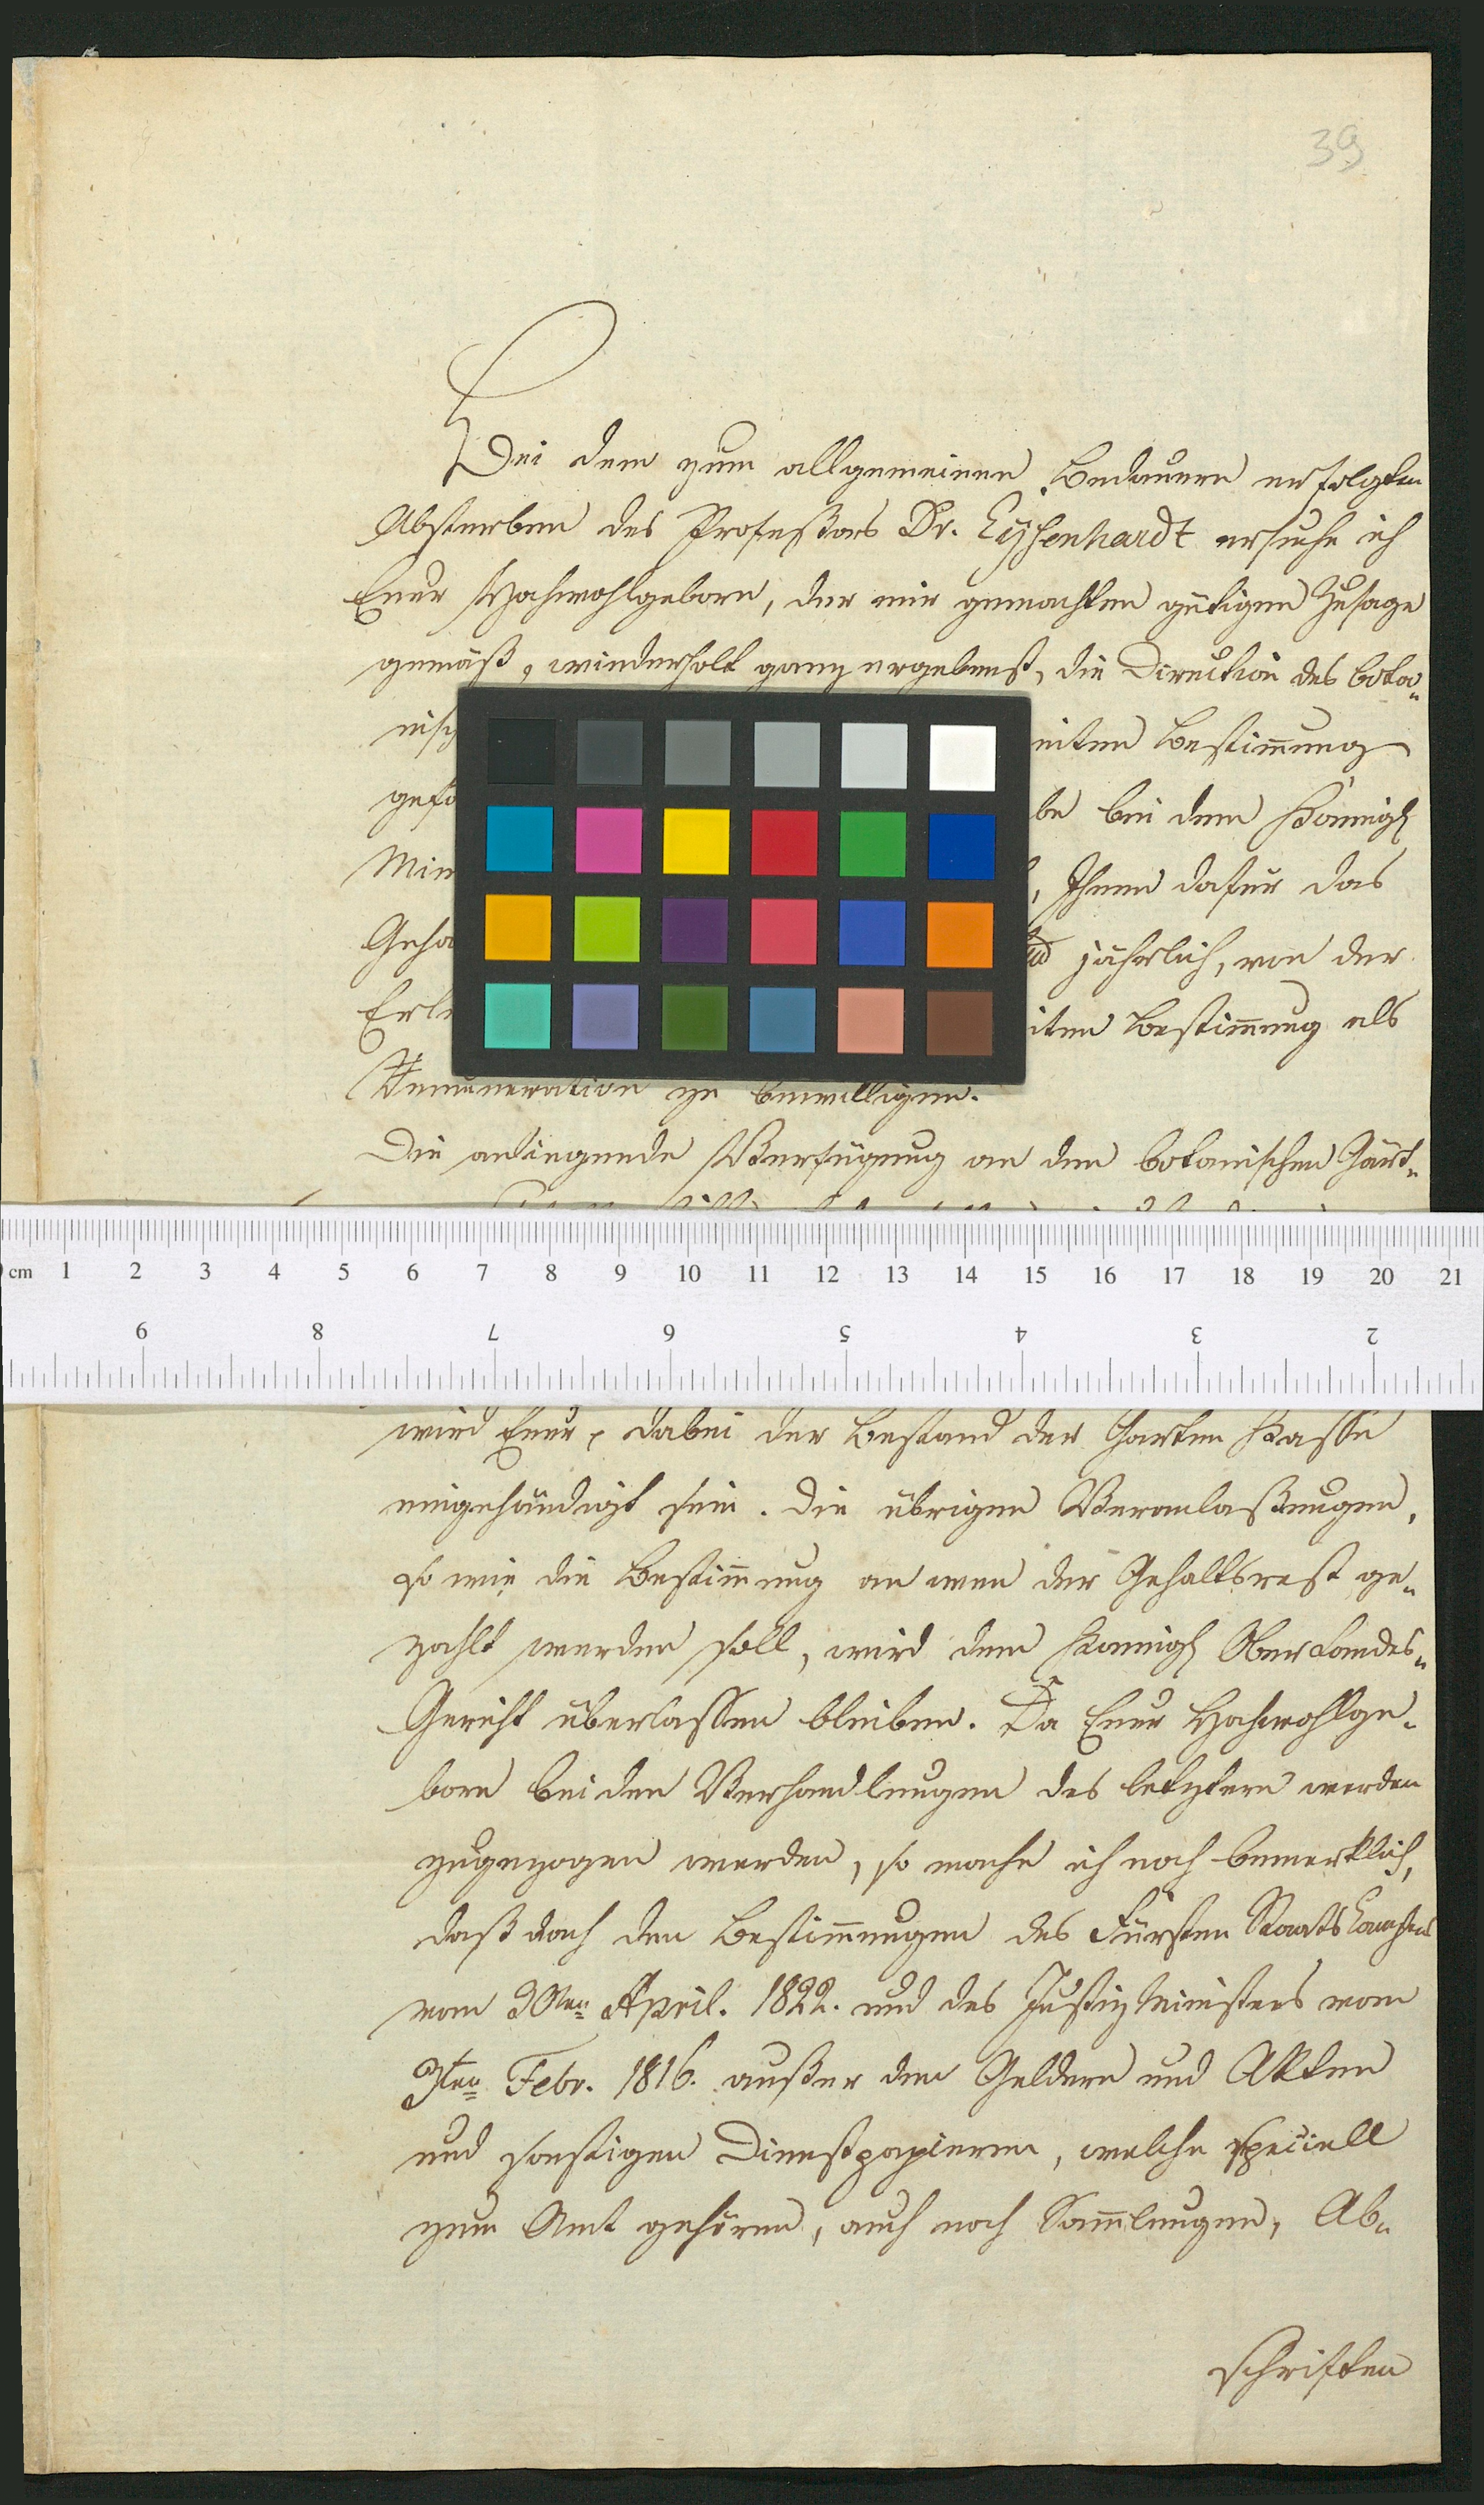 39
Bei dem zum allgemeinen Bedauern erfolgten
Absterben des Profeßors Dr. Eysenhardt ersuche ich
Euer Hochwohlgeborn, der mir gemachten gütigen Zusage
gemäß, wiederholt ganz ergebenst, die Direction des bota-
nisch eiten Bestim̄ung
be bei dem Königl
Min , Ihnen dafür das
Geha jährlich, von der
Erle iten Bestim̄ung als
Remuneration zu bewilligen.
Die anliegende Verfügung an den botanischen Gärt-
cm 1 2 3 4 5 6 7 8 9 10 11 12 13 14 15 16 17 18 19 20 21
9 8 7 6 5 4 3 2
wird Euer dabei der Bestand der Garten Kasse
eingehändigt sein. Die übrigen Veranlaßungen,
so wie die Bestim̄ung an wen der Gehaltsrest ge-
zahlt werden soll, wird dem Königl Ober Landes-
Gericht überlassen bleiben. Da Euer Hochwohlge-
born bei den Verhandlungen des letztern werden
zugezogen werden, so mache ich noch bemerklich,
daß nach den Bestim̄ungen des Fürsten Staats Canzlers
vom April. 1822. und des Justiz Ministers vom
Febr. 1816. außer den Geldern und Akten
und sonstigen Dienstpapieren, welche speciell
zum Amt gehören, auch noch Sam̄lungen, Ab-
schriften